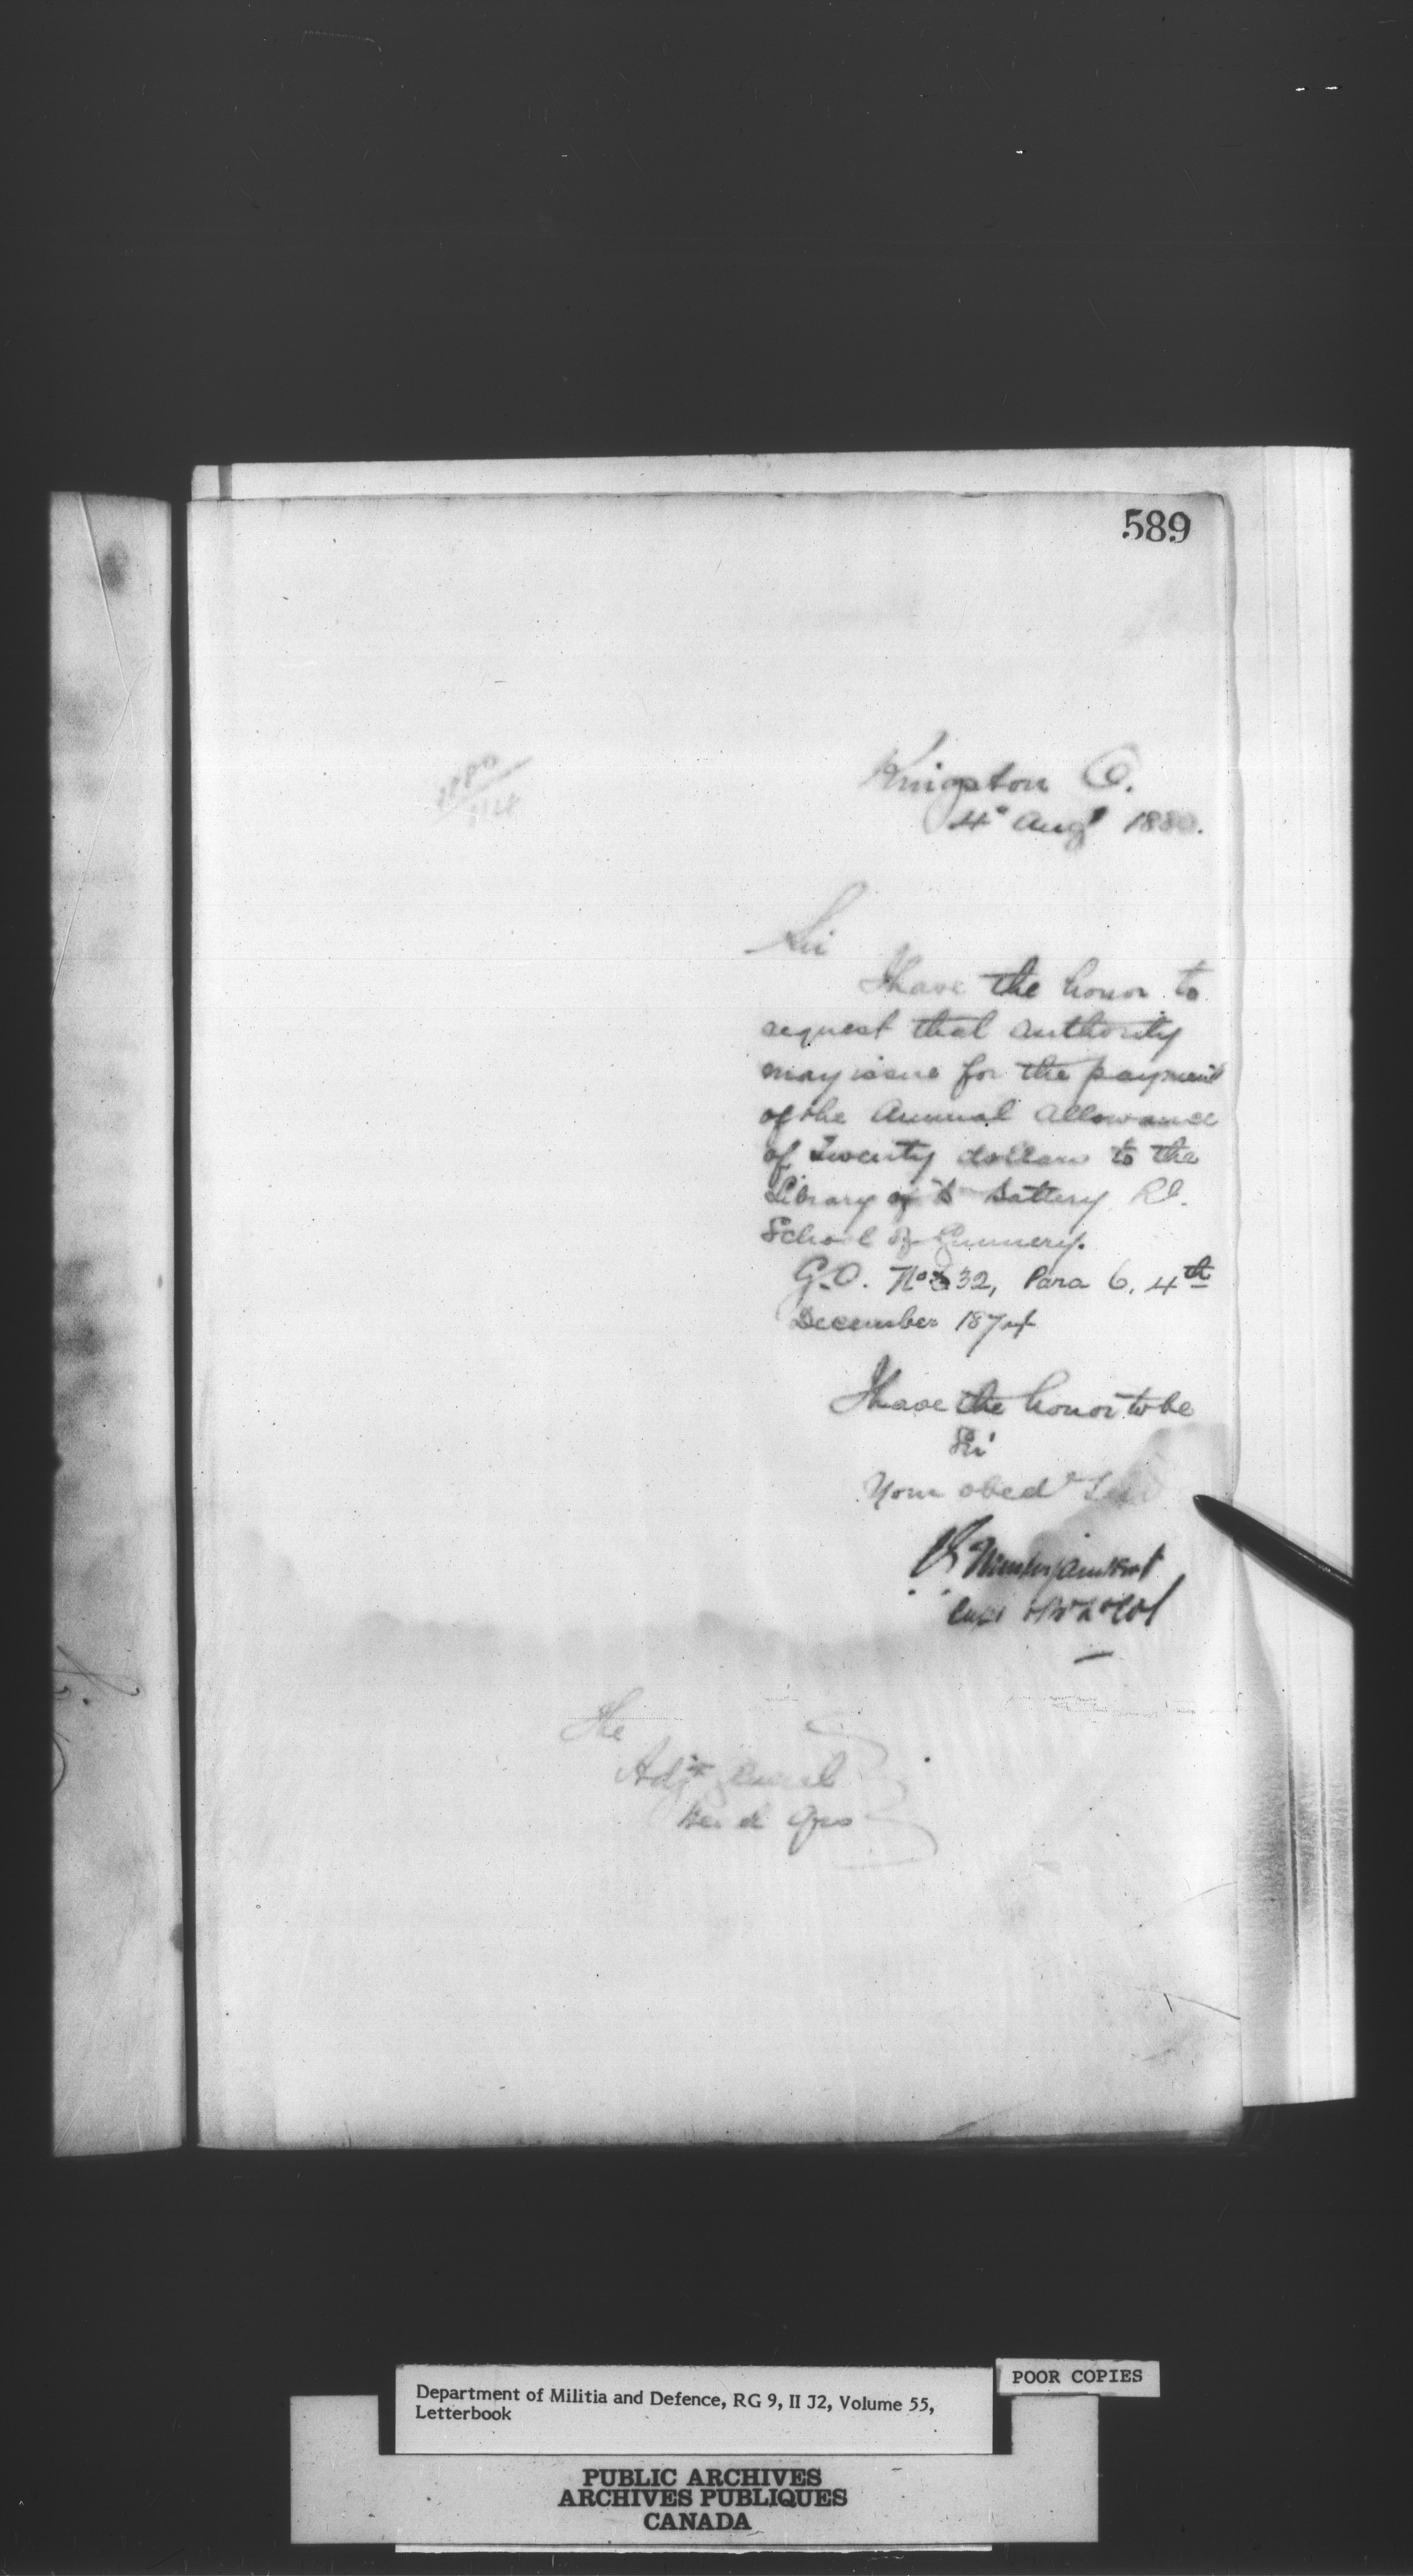 589
Kingston O.
4th Augt 1880.
Sir
I have the honor to
request that authority
may issue for the payment
of the Annual Allowance
of Twenty dollars to the
Library of Battery
School of Gunnery.
G.O. No 32, Para 6, 4th
December 1874
I have the honor to be
Sir
Your obedt
The
Adjt General
Head Qrs
Department of Militia and Defence, RG 9, II J2, Volume 55,
Letterbook
POOR COPIES
PUBLIC ARCHIVES
ARCHIVES PUBLIQUES
CANADA